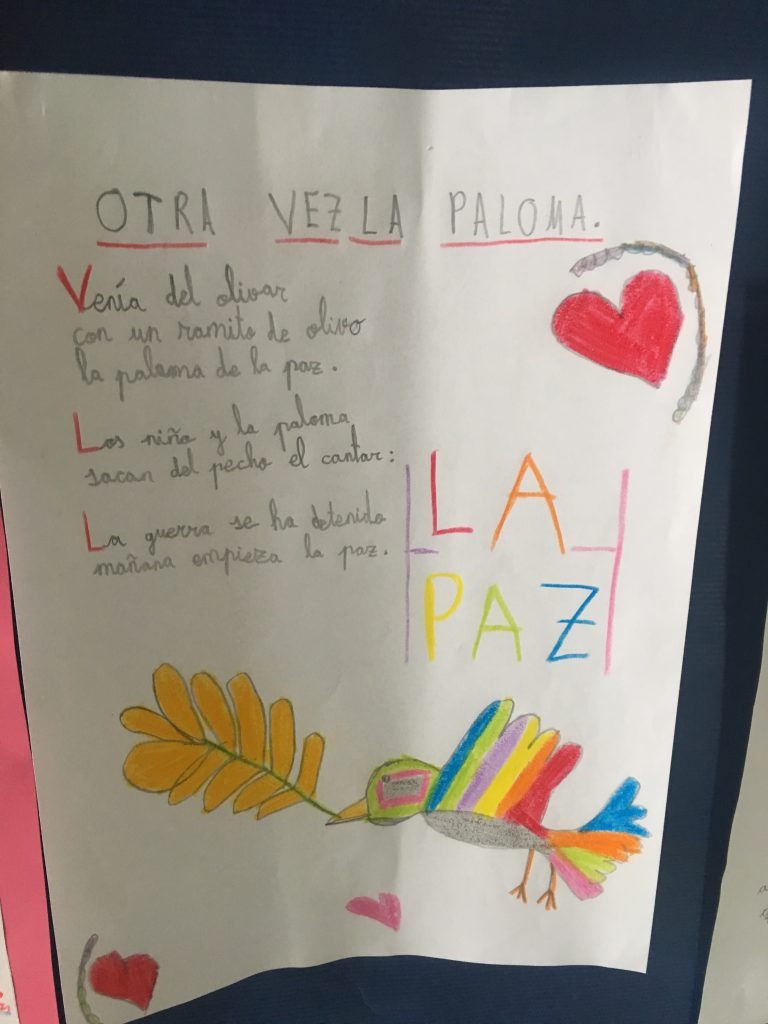 OTRA VEZ LA PALOMA.
Venía del olivar
con un ramito de olivo
la paloma de la paz.
Los niño y la paloma
sacan del pecho el cantar:
La guerra se ha detenido
mañana empieza la paz.
LA
PAZ